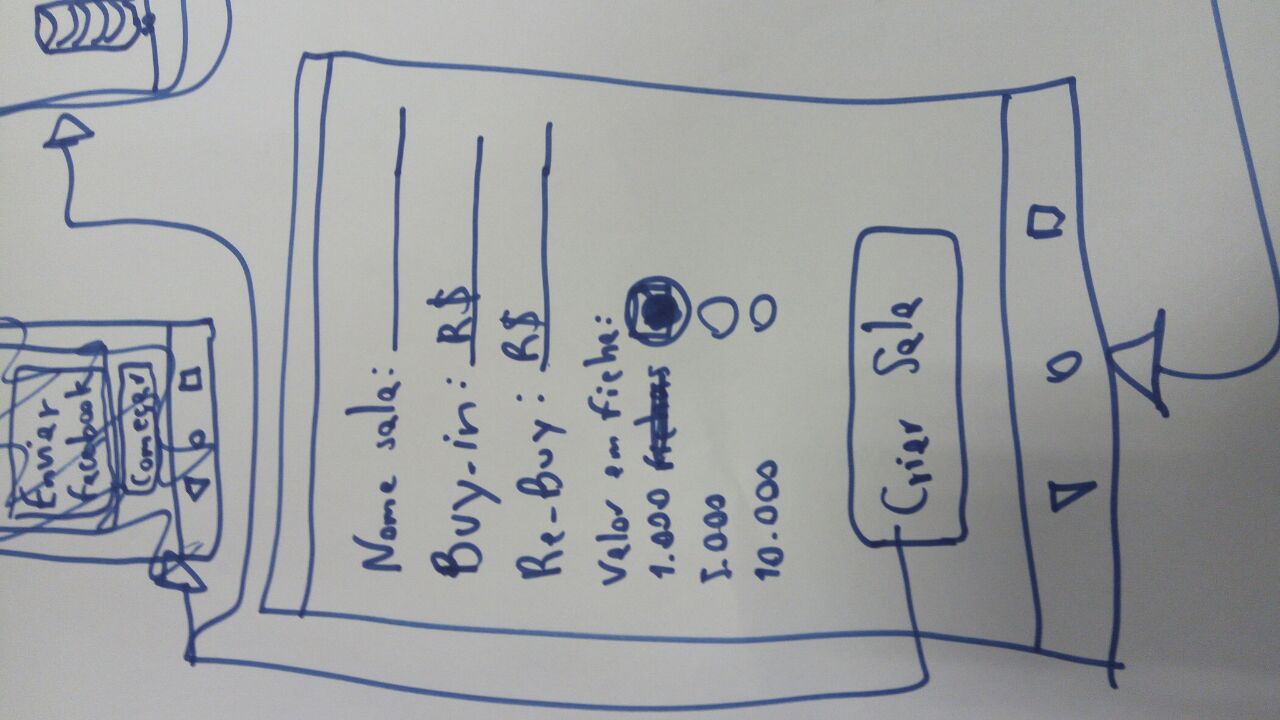 Enviar
facebook
Começar
Nome sala:
Buy-in: R$
Re-Buy: R$
Valor em ficha:
1.000 fichas
5.000
10.000
Criar Sala